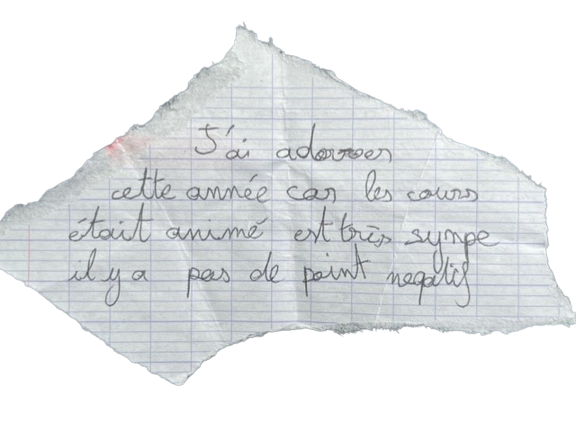 J'ai adorrer
cette année car les cours
était animé est très sympe
il y a pas de point negatif